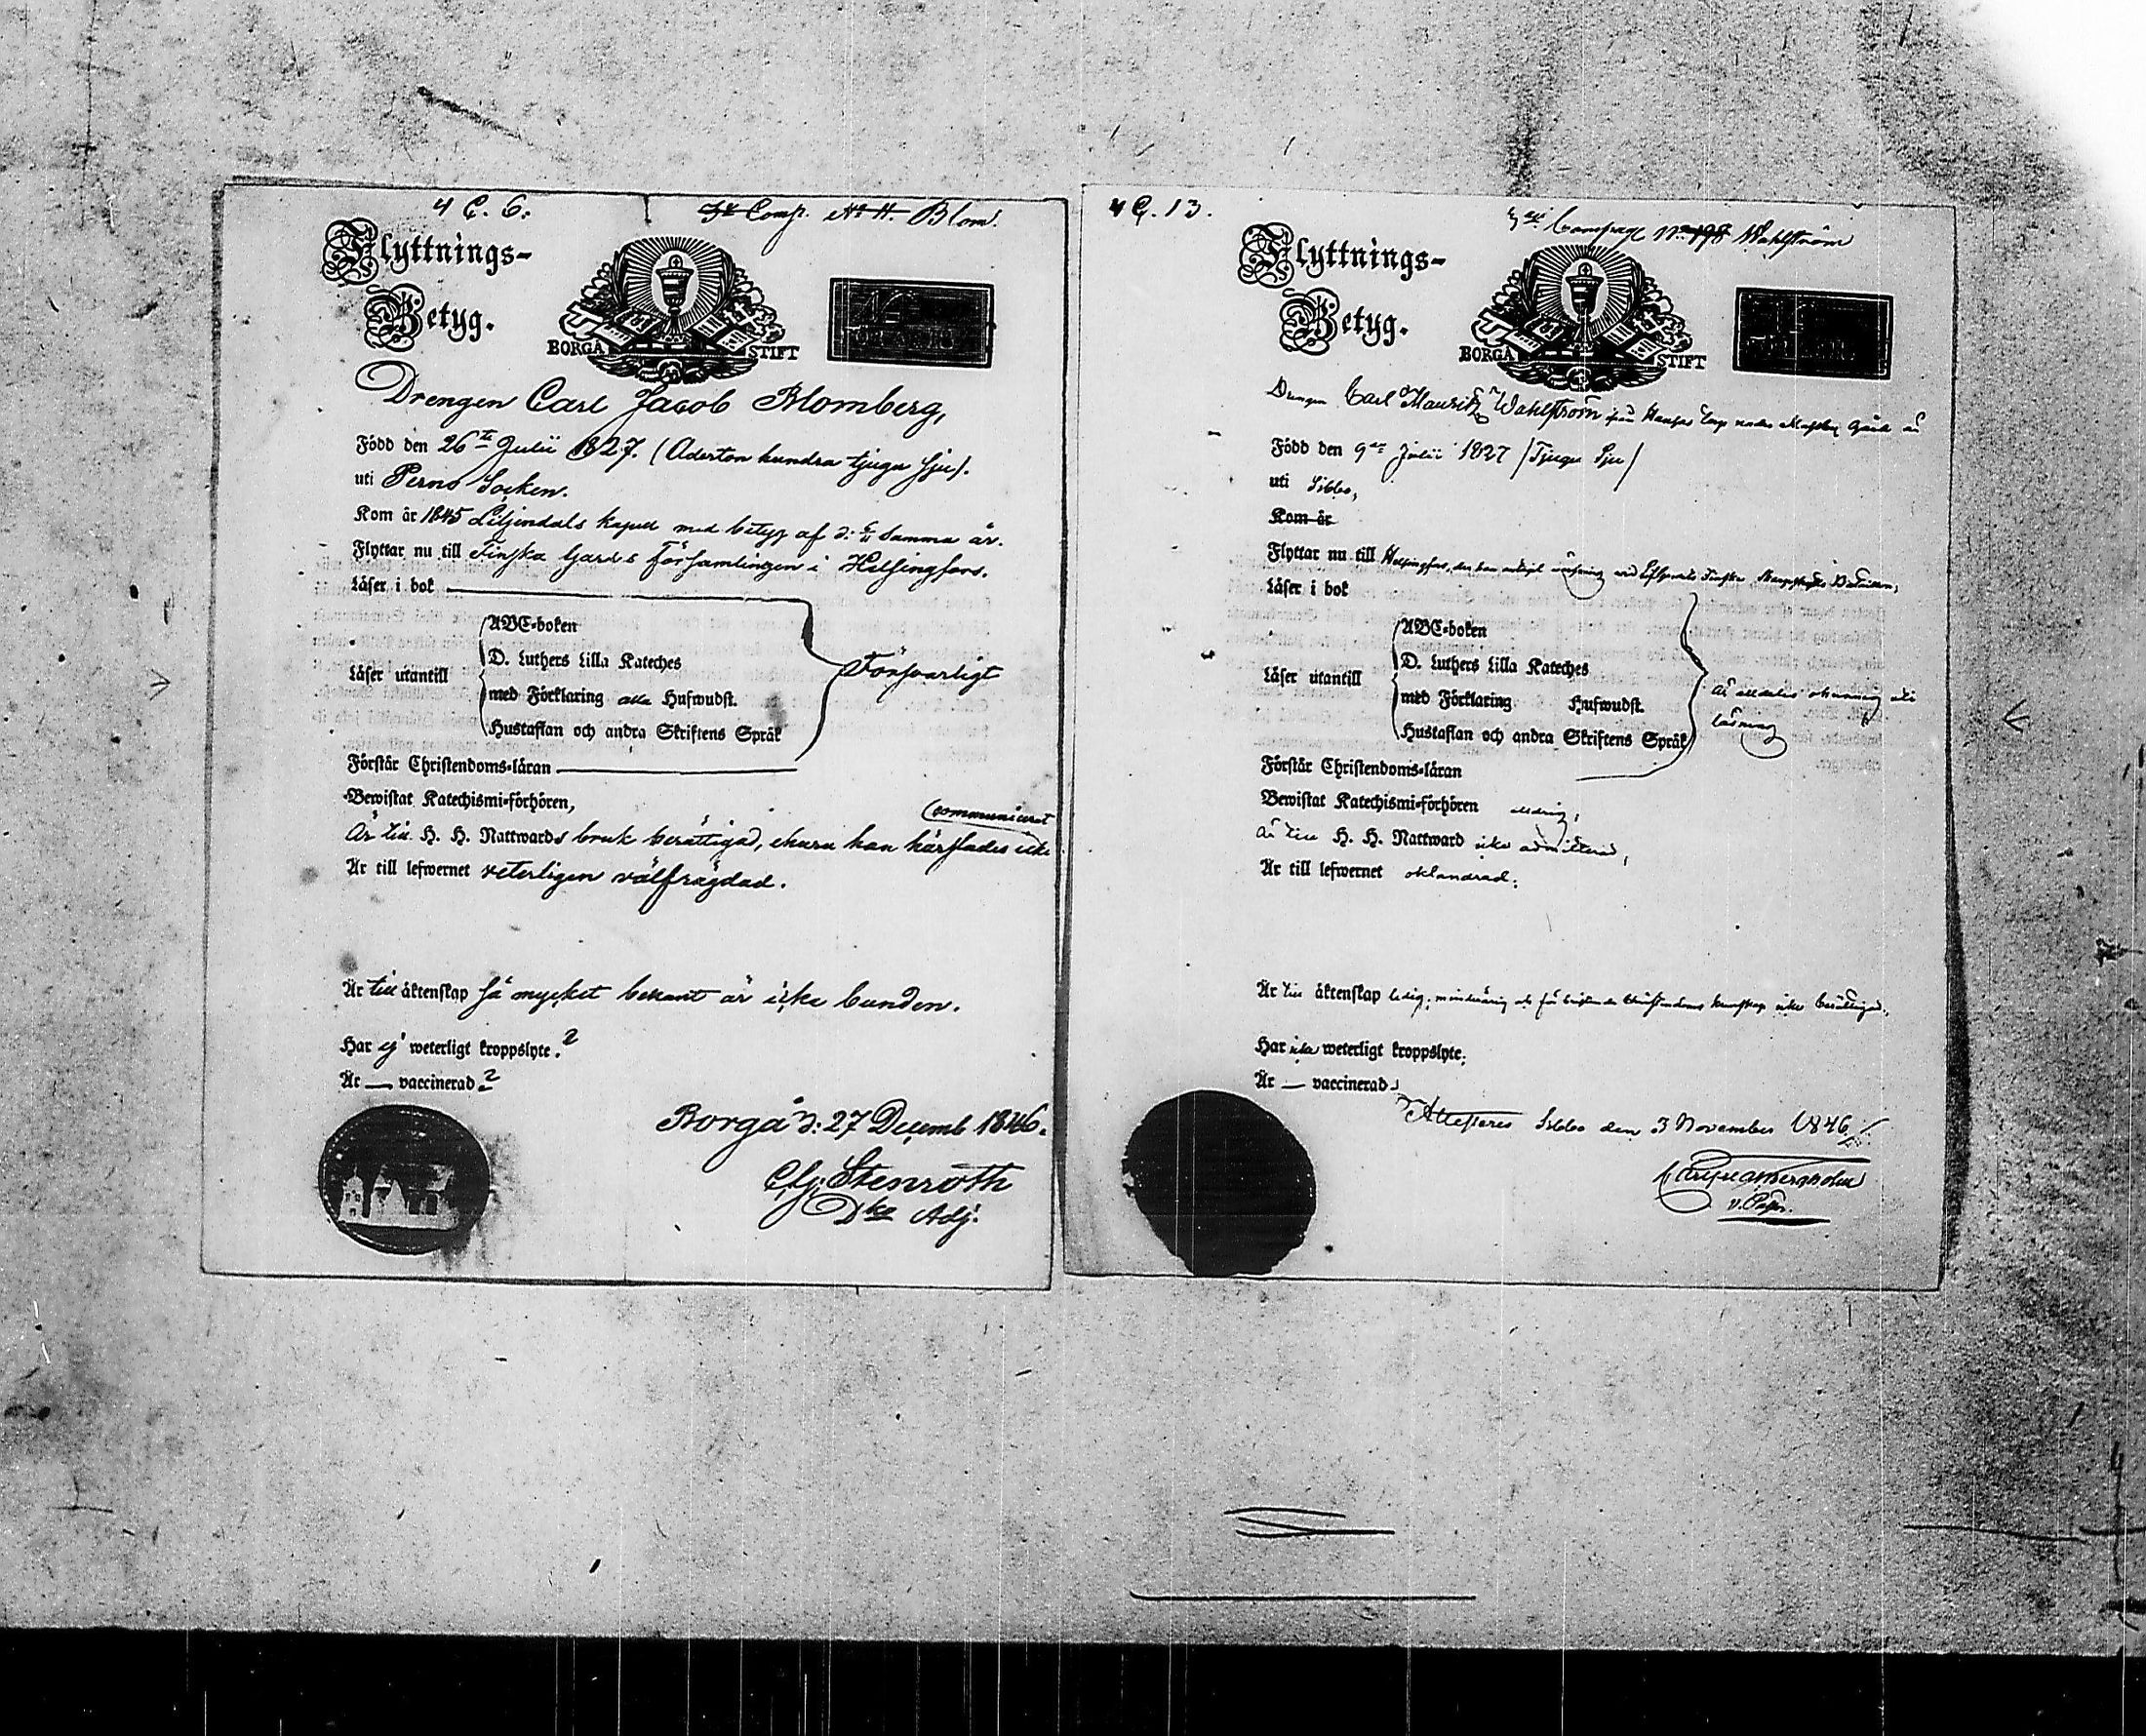 4 C. 6.
Comp. Blom.
Flyttnings-
Betyg.
BORGÅ STIFT
Drengen Carl Jacob Blomberg,
Född den 26te Julii 1827. (Aderton hundra tjugu sju).
uti Perno Socken.
Kom år 1845 Liljendals kapell med betyg af d: samma år.
Flyttar nu till Finska Gardes Församlingen i Helsingfors.
Läser i bok
ABC-boken
D. Luthers Lilla Kateches
Läser utantill
Försvarligt
med Förklaring alla Hufwudst.
Hustaflan och andra Skriftens Språk
Förstår Christendoms-läran
Bewistat Katechismi-förhören,
communicerat
Är till H. H. Nattwards bruk berättigad, ehuru han härstädes icke
Är till lefwernet veterligen välfrägdad.
Är till äktenskap så mycket bekant är icke bunden.
Har ej weterligt kroppslyte.?
Är — vaccinerad?
Borgå d: 27 Decemb 1846.
Stenroth
Adj.
4 C. 13.
Compagn Wahlström
Flyttnings-
Betyg.
BORGÅ STIFT
Drengen Carl Mauritz Wahlström ifrån under Gård är
Född den 9de Julii 1827 /Tjugu Sju/
uti Sibbo,
Kom år
Flyttar nu till Helsingfors, den han enligt wid Finska Bataillon,
Läser i bok
ABC-boken
D. Luthers Lilla Kateches
Läser utantill
med Förklaring Hufwudst.
är alldeles okunnig uti
läsning
Hustaflan och andra Skriftens Språk
Förstår Christendoms-läran
Bewistat Katechismi-förhören aldrig,
är till H. H. Nattward icke admitterad,
Är till lefwernet oklandrad.
Är till äktenskap ledig, minderårig och för bristande Christendoms kunskap icke berättigad.
Har icke weterligt kroppslyte.
Är — vaccinerad
Attesteras Sibbo den 3 November 1846
v. Pastor.